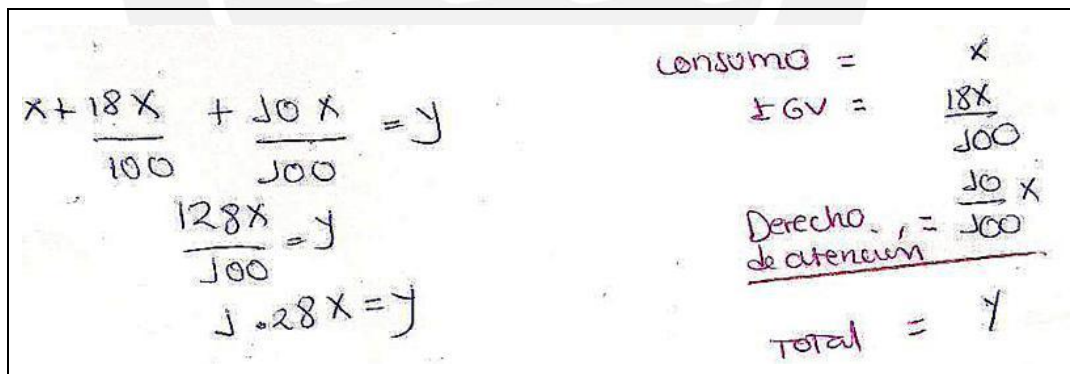 x + 18x/100 + 10x/100 = y
128x/100 = y
1.28x = y
consumo = x
IGV = 18x/100
Derecho de atención = 10/100 x
Total = y